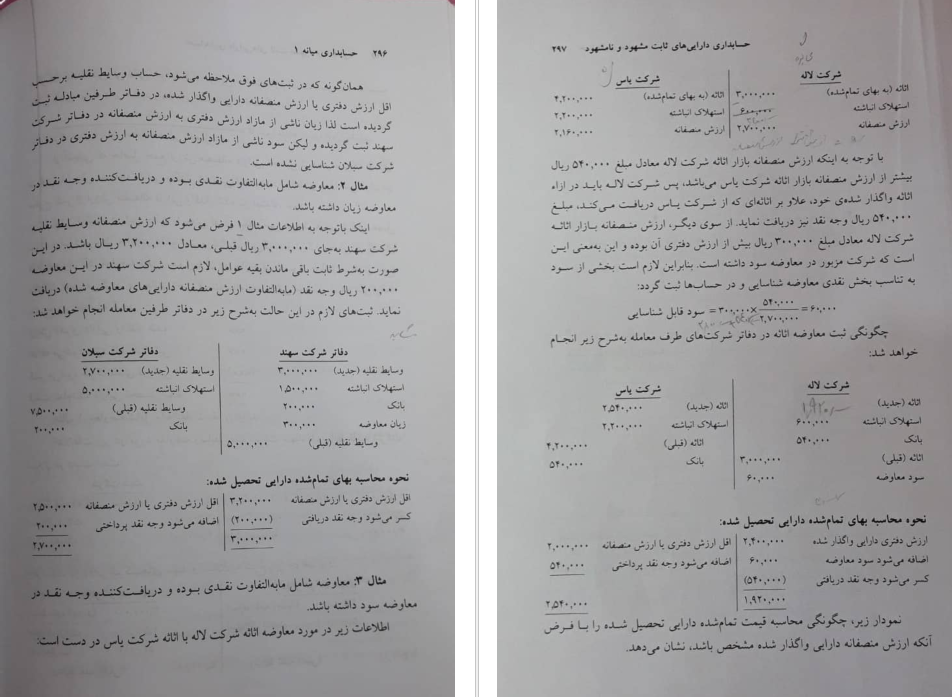 ۲۹۶ حسابداری میانه ۱
همان‌گونه که در ثبت‌های فوق ملاحظه می‌شود، حساب وسایط نقلیه برحسب
اقل ارزش دفتری یا ارزش منصفانه دارایی واگذار شده، در دفاتر طرفین مبادله ثبت
گردیده است لذا زیان ناشی از مازاد ارزش دفتری به ارزش منصفانه در دفاتر شرکت
سهند ثبت گردیده و لیکن سود ناشی از مازاد ارزش منصفانه به ارزش دفتری در دفاتر
شرکت سبلان شناسایی نشده است.
مثال ۲: معاوضه شامل مابه‌التفاوت نقدی بوده و دریافت‌کننده وجه نقد در
معاوضه زیان داشته باشد.
اینک باتوجه به اطلاعات مثال ۱ فرض می‌شود که ارزش منصفانه وسایط نقلیه
شرکت سهند به‌جای ۳,۰۰۰,۰۰۰ ریال قبلی، معادل ۳,۲۰۰,۰۰۰ ریال باشد. در این
صورت به‌شرط ثابت باقی ماندن بقیه عوامل، لازم است شرکت سهند در این معاوضه
۲۰۰,۰۰۰ ریال وجه نقد (مابه‌التفاوت ارزش منصفانه دارایی‌های معاوضه شده) دریافت
نماید. ثبت‌های لازم در این حالت به‌شرح زیر در دفاتر طرفین معامله انجام خواهد شد:
دفاتر شرکت سهند دفاتر شرکت سبلان
وسایط نقلیه (جدید) ۳,۰۰۰,۰۰۰ وسایط نقلیه (جدید) ۲,۷۰۰,۰۰۰
استهلاک انباشته ۱,۵۰۰,۰۰۰ استهلاک انباشته ۵,۰۰۰,۰۰۰
بانک ۲۰۰,۰۰۰ وسایط نقلیه (قبلی) ۷,۵۰۰,۰۰۰
زیان معاوضه ۳۰۰,۰۰۰ بانک ۲۰۰,۰۰۰
وسایط نقلیه (قبلی) ۵,۰۰۰,۰۰۰
نحوه محاسبه بهای تمام‌شده دارایی تحصیل شده:
اقل ارزش دفتری یا ارزش منصفانه ۳,۲۰۰,۰۰۰ اقل ارزش دفتری یا ارزش منصفانه ۲,۵۰۰,۰۰۰
کسر می‌شود وجه نقد دریافتی (۲۰۰,۰۰۰) اضافه می‌شود وجه نقد پرداختی ۲۰۰,۰۰۰
۳,۰۰۰,۰۰۰ ۲,۷۰۰,۰۰۰
مثال ۳: معاوضه شامل مابه‌التفاوت نقدی بوده و دریافت‌کننده وجه نقد در
معاوضه سود داشته باشد.
اطلاعات زیر در مورد معاوضه اثاثه شرکت لاله با اثاثه شرکت یاس در دست است:
حسابداری دارایی‌های ثابت مشهود و نامشهود ۲۹۷
شرکت لاله شرکت یاس
اثاثه (به بهای تمام‌شده) ۳,۰۰۰,۰۰۰ اثاثه (به بهای تمام‌شده) ۴,۲۰۰,۰۰۰
استهلاک انباشته ۶۰۰,۰۰۰ استهلاک انباشته ۲,۲۰۰,۰۰۰
ارزش منصفانه ۲,۷۰۰,۰۰۰ ارزش منصفانه ۲,۱۶۰,۰۰۰
با توجه به اینکه ارزش منصفانه بازار اثاثه شرکت لاله معادل مبلغ ۵۴۰,۰۰۰ ریال
بیشتر از ارزش منصفانه بازار اثاثه شرکت یاس می‌باشد، پس شرکت لاله باید در ازاء
اثاثه واگذار شده‌ی خود، علاو بر اثاثه‌ای که از شرکت یاس دریافت می‌کند، مبلغ
۵۴۰,۰۰۰ ریال وجه نقد نیز دریافت نماید. از سوی دیگر، ارزش منصفانه بازار اثاثه
شرکت لاله معادل مبلغ ۳۰۰,۰۰۰ ریال بیش از ارزش دفتری آن بوده و این به‌معنی این
است که شرکت مزبور در معاوضه سود داشته است. بنابراین لازم است بخشی از سود
به تناسب بخش نقدی معاوضه شناسایی و در حساب‌ها ثبت گردد:
سود قابل شناسایی = ۳۰۰,۰۰۰ × ۵۴۰,۰۰۰ / ۲,۷۰۰,۰۰۰ = ۶۰,۰۰۰
چگونگی ثبت معاوضه اثاثه در دفاتر شرکت‌های طرف معامله به‌شرح زیر انجام
خواهد شد:
شرکت لاله شرکت یاس
اثاثه (جدید) ۱,۹۲۰,۰۰۰ اثاثه (جدید) ۲,۵۴۰,۰۰۰
استهلاک انباشته ۶۰۰,۰۰۰ استهلاک انباشته ۲,۲۰۰,۰۰۰
بانک ۵۴۰,۰۰۰ اثاثه (قبلی) ۴,۲۰۰,۰۰۰
اثاثه (قبلی) ۳,۰۰۰,۰۰۰ بانک ۵۴۰,۰۰۰
سود معاوضه ۶۰,۰۰۰
نحوه محاسبه بهای تمام‌شده دارایی تحصیل شده:
ارزش دفتری دارایی واگذار شده ۲,۴۰۰,۰۰۰ اقل ارزش دفتری یا ارزش منصفانه ۲,۰۰۰,۰۰۰
اضافه می‌شود سود معاوضه ۶۰,۰۰۰ اضافه می‌شود وجه نقد پرداختی ۵۴۰,۰۰۰
کسر می‌شود وجه نقد دریافتی (۵۴۰,۰۰۰)
۱,۹۲۰,۰۰۰ ۲,۵۴۰,۰۰۰
نمودار زیر، چگونگی محاسبه قیمت تمام‌شده دارایی تحصیل شده را با فرض
آنکه ارزش منصفانه دارایی واگذار شده مشخص باشد، نشان می‌دهد.